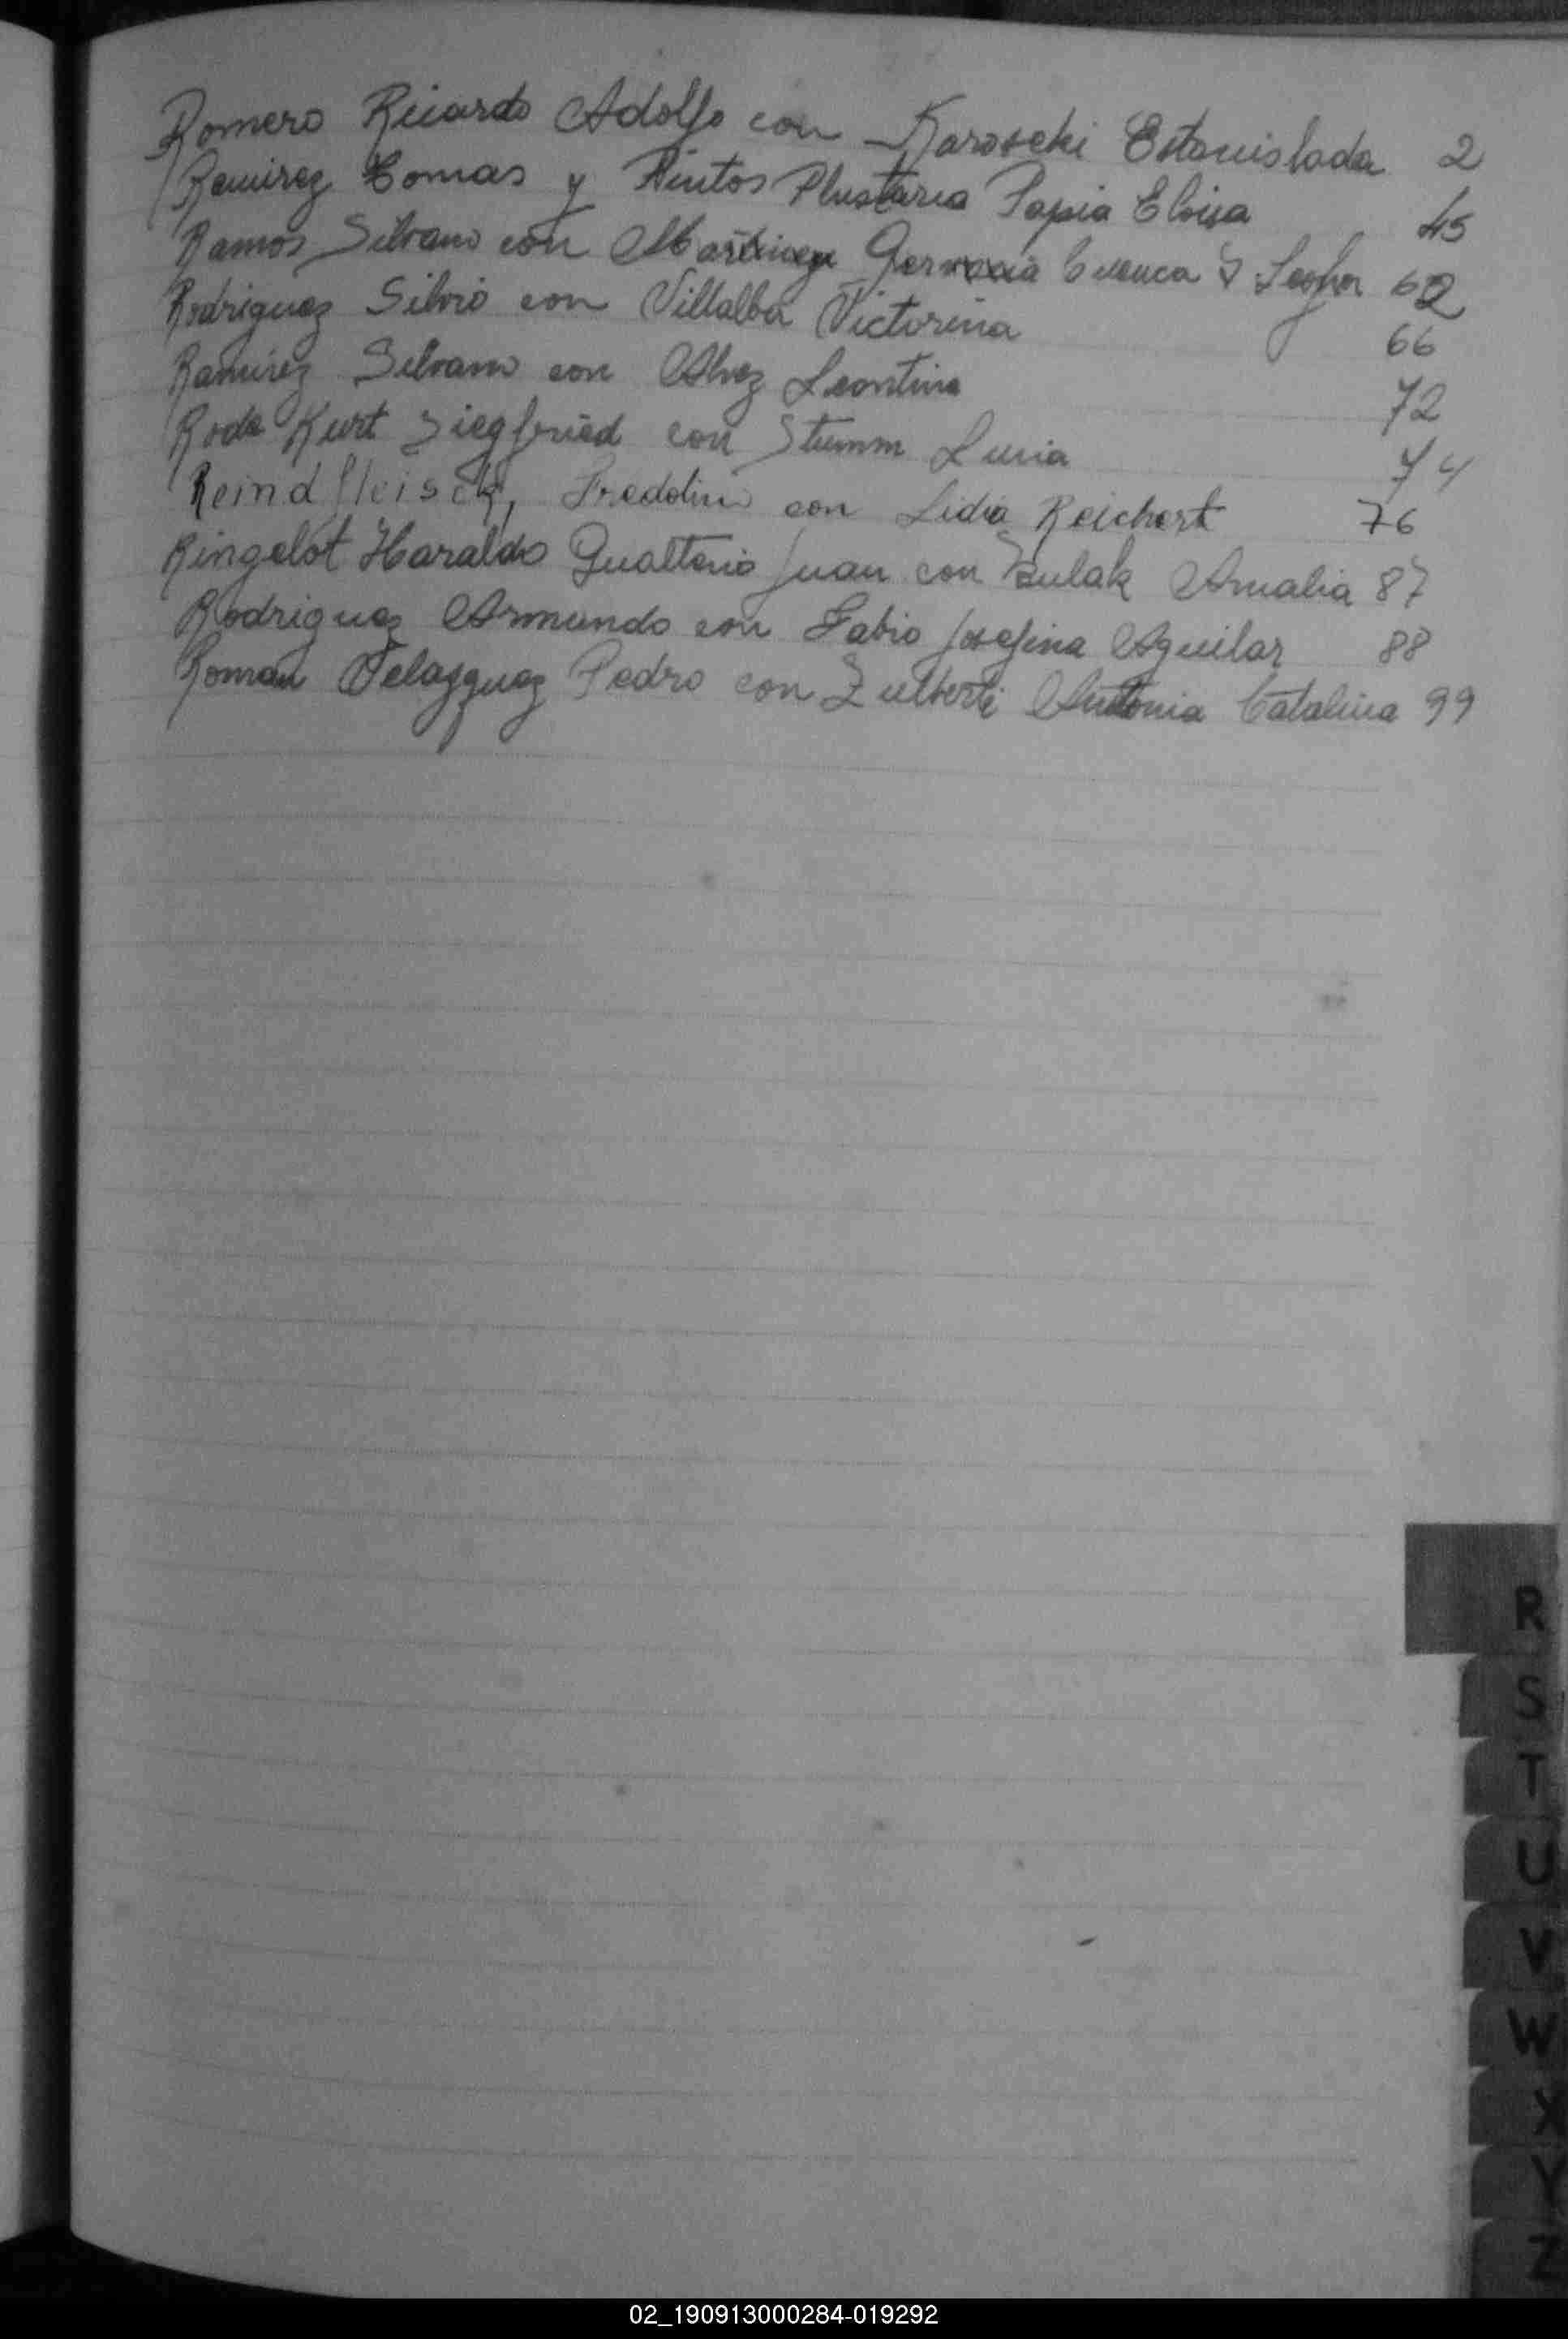 Romero Ricardo Adolfo con Karoseki Estanislada 2
Ramirez Tomas y Pintos Plustaria Papia Eloisa 45
Ramos Silvano con Martinez Cuenca 62
Rodriguez Silvio con Villalba Victorina 66
Ramirez Silvano con Alvez Leontina 72
Roda Kurt Siegfried con Stumm Lucia 74
Reindfleisch, Fredolino con Lidia Reichert 76
Ringelot Haraldo Gualterio Juan con Zulak Amalia 87
Rodriguez Armando con Fabio Josefina Aguilar 88
Roman Velazquez Pedro con Zulberti Antonia Catalina 99
R
S
T
U
V
W
X
Y
Z
02_190913000284-019292